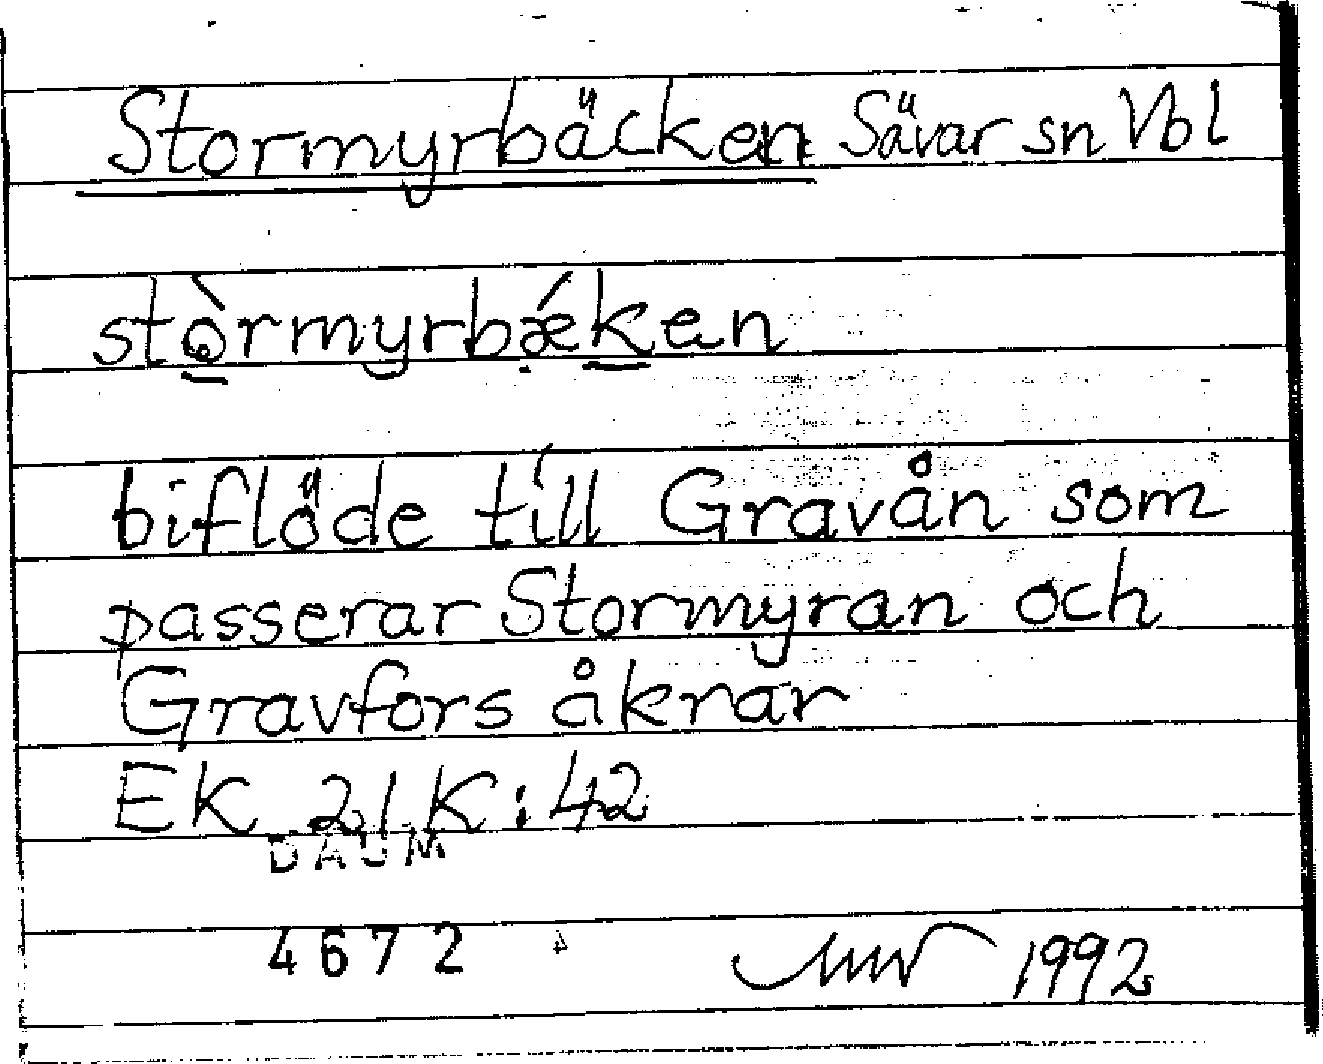 Stormyrbäcken Sävar sn Vbl
stòrmyrbǽken
biflöde till Gravån som
passerar Stormyran och
Gravfors åkrar
EK 21 K:42
DAUM
4672
1992